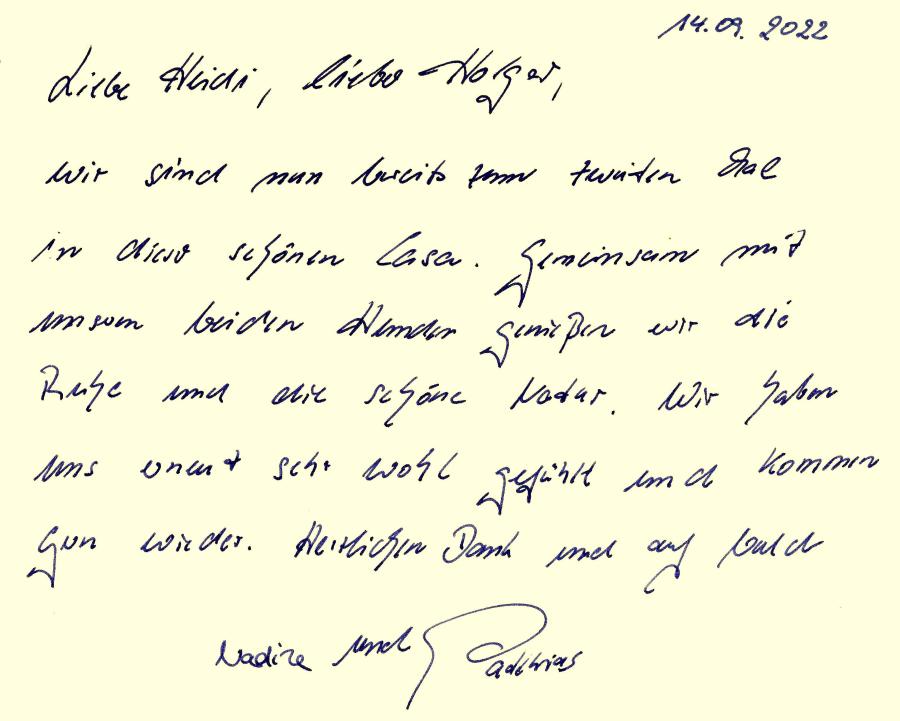 14.09. 2022
Liebe Heidi, lieber Holger,
wir sind nun bereits zum zweiten Mal
in dieser schönen Casa. Gemeinsam mit
unseren beiden Hunden genießen wir die
Ruhe und die schöne Natur. Wir haben
uns erneut sehr wohl gefühlt und kommen
gern wieder. Herzlichen Dank und auf bald
Nadine und